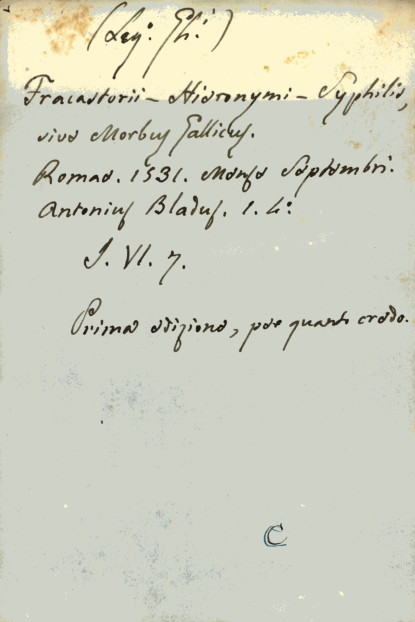 Fracastorii - Hieronymi - Syphilis,
sive Morbus Gallicus.
Romae. 1531. Mense Septembri.
Antonius Bladus. 1. 4°
I. VI. 7.
Prima edizione, per quanto credo.
C